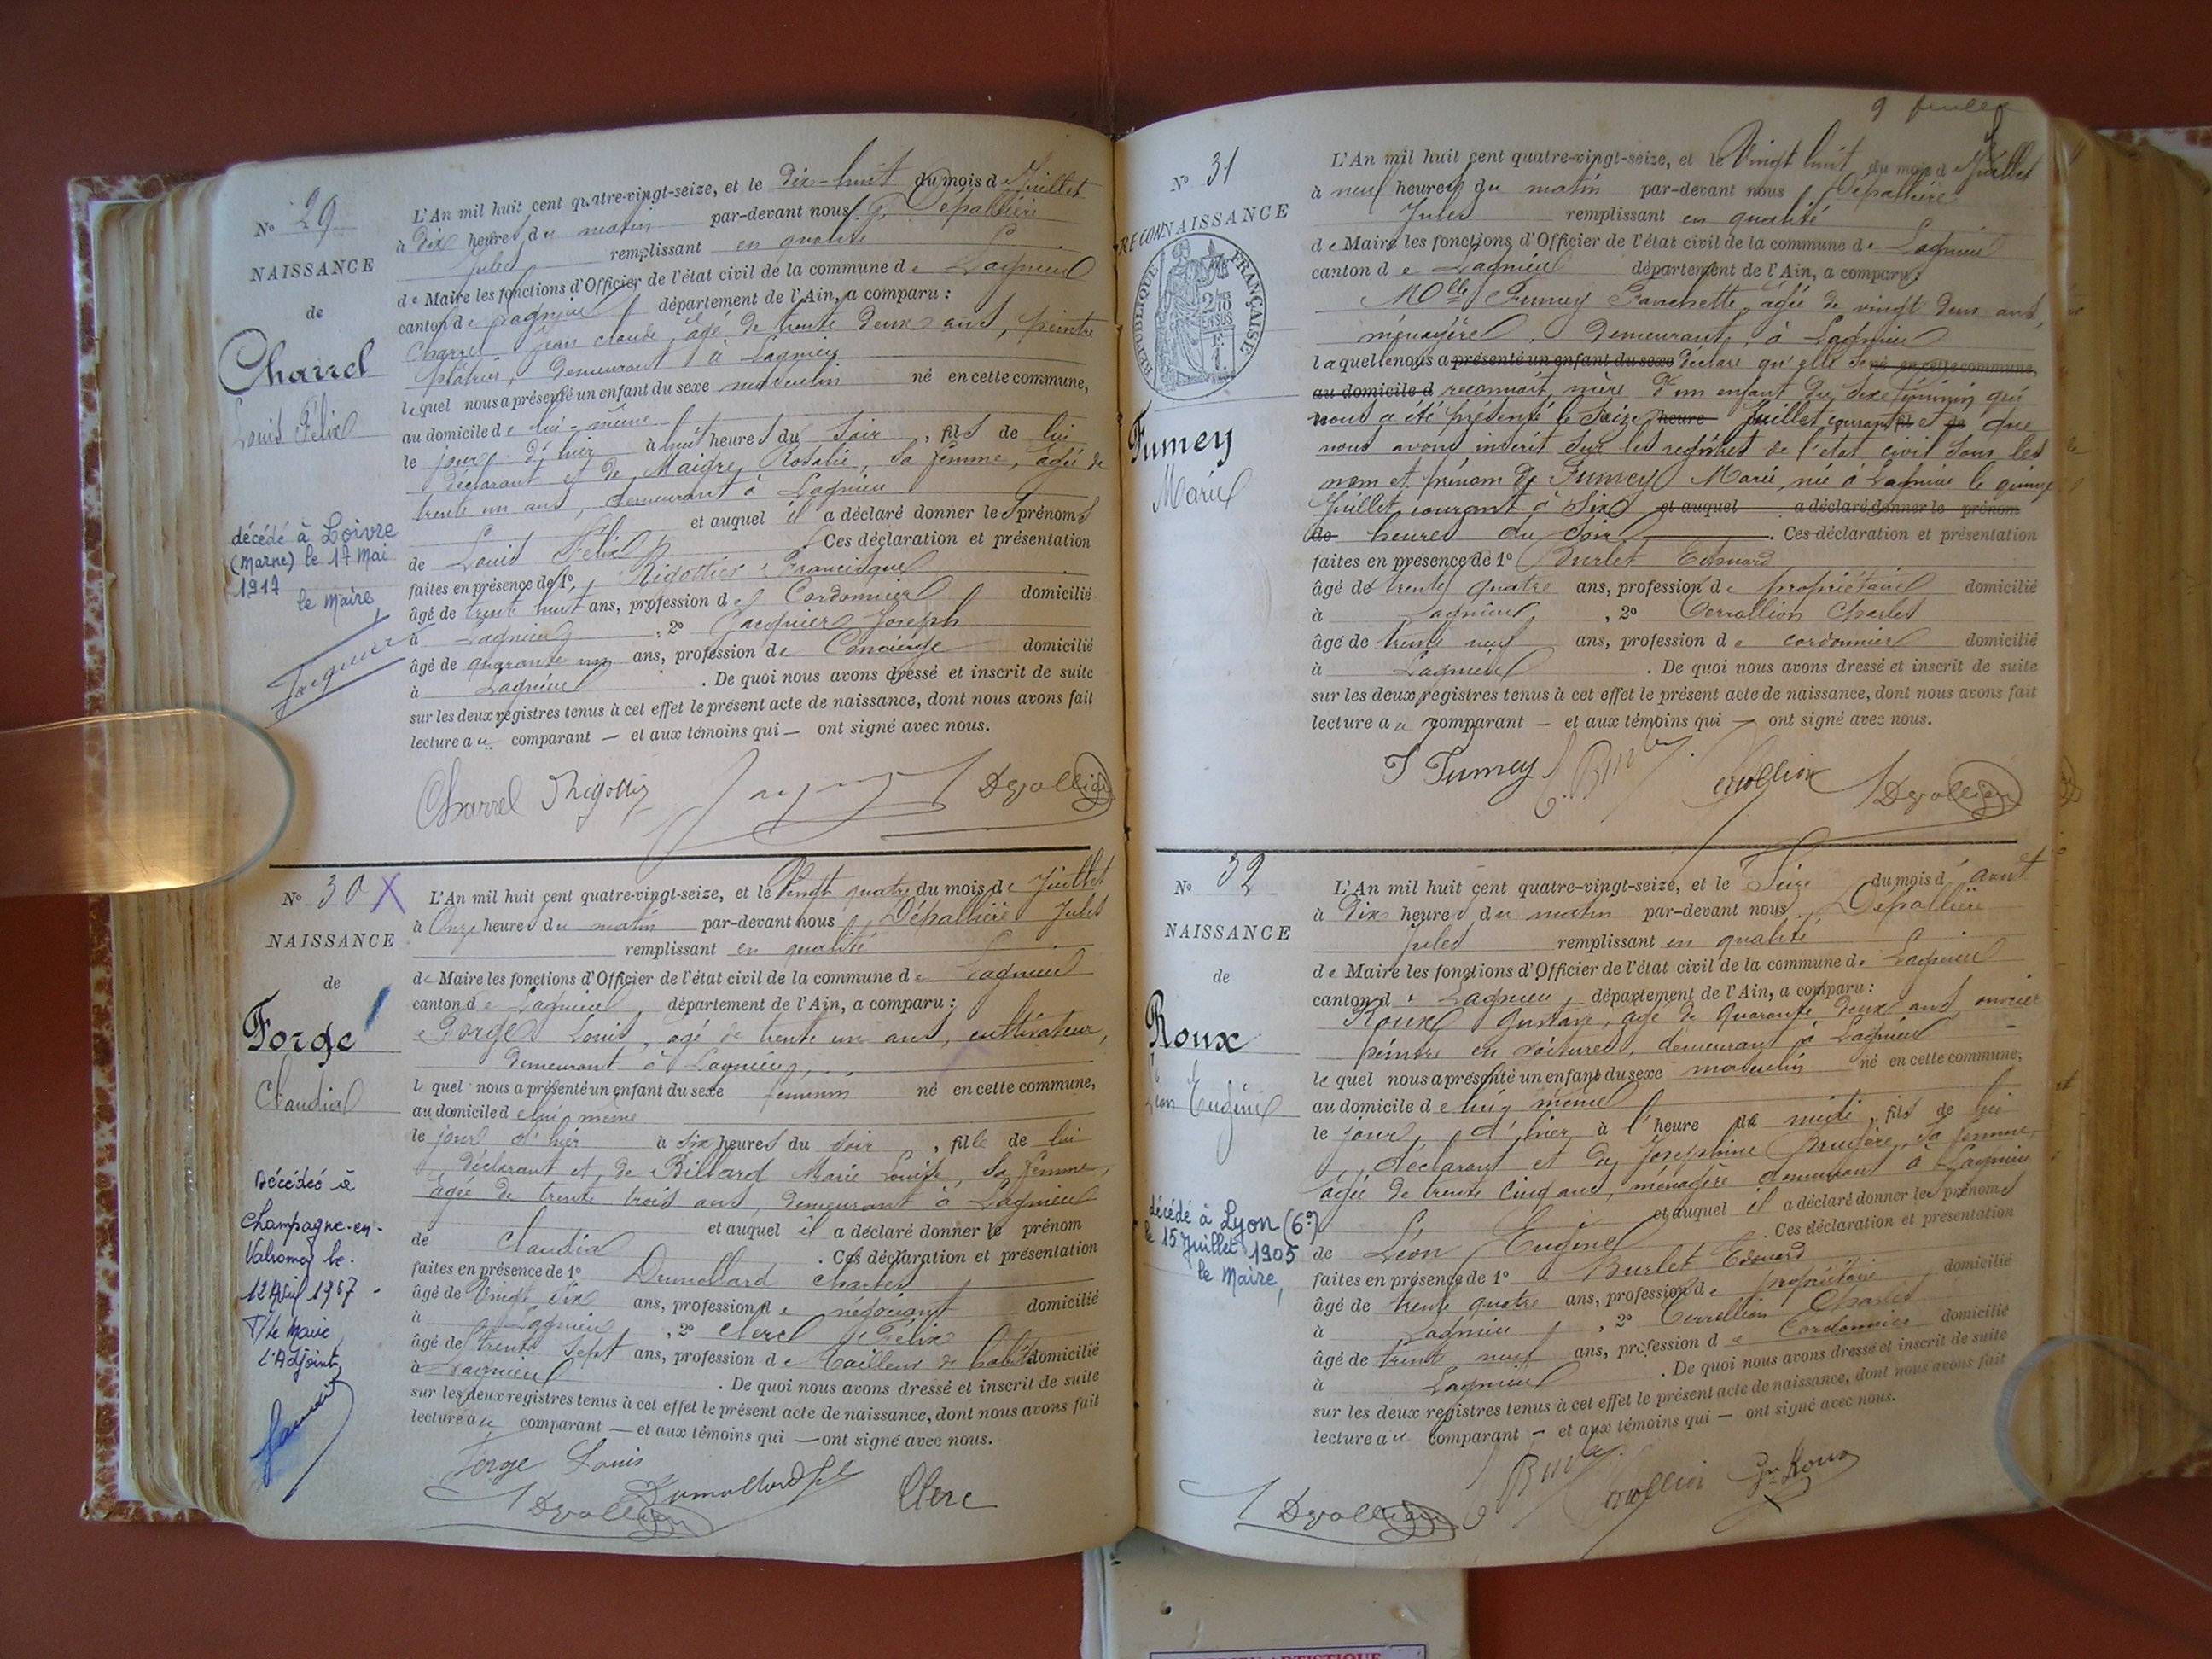 N° 29
NAISSANCE
de
Charrel
Louis Félix
décédé à Loivre
(Marne) le 17 Mai
1917
le Maire,
Jacquier
L'An mil huit cent quatre-vingt-seize, et le dix-huit du mois de Juillet
à Dix heures du matin par-devant nous
Jules remplissant en qualité
de Maire les fonctions d'Officier de l'état civil de la commune de Lagnieu
canton de Lagnieu département de l'Ain, a comparu :
Charrel Jean Claude, âgé de trente deux ans, peintre
plâtrier, demeurant à Lagnieu
lequel nous a présenté un enfant du sexe masculin né en cette commune,
au domicile de lui-même
le jour d'hier à huit heures du soir, fils de lui
déclarant et de Maigre Rosalie, sa femme, âgée de
trente un ans, demeurant à Lagnieu
et auquel il a déclaré donner les prénoms
de Louis Félix . Ces déclaration et présentation
faites en présence de 1° Rigottier Francisque
âgé de trente huit ans, profession de Cordonnier domicilié
à Lagnieu, 2° Jacquier Joseph
âgé de quarante un ans, profession de Concierge domicilié
à Lagnieu . De quoi nous avons dressé et inscrit de suite
sur les deux registres tenus à cet effet le présent acte de naissance, dont nous avons fait
lecture au comparant — et aux témoins qui — ont signé avec nous.
Charrel
N° 30 X
NAISSANCE
de
Forge
Claudia
Décédée à
Champagne-en-
Valromey le
12 Avril 1967
P/le Maire
L'Adjoint,
L'An mil huit cent quatre-vingt-seize, et le Vingt quatre du mois de Juillet
à Onze heures du matin par-devant nous Dépallière Jules
remplissant en qualité
de Maire les fonctions d'Officier de l'état civil de la commune de Lagnieu
canton de Lagnieu, département de l'Ain, a comparu :
Forge Louis, âgé de trente un ans, cultivateur,
demeurant à Lagnieu,
lequel nous a présenté un enfant du sexe féminin né en cette commune,
au domicile de lui même
le jour d'hier à six heures du soir, fille de lui
déclarant et de Billard Marie Louise, sa femme,
âgée de trente trois ans, demeurant à Lagnieu
et auquel il a déclaré donner le prénom
de Claudia . Ces déclaration et présentation
faites en présence de 1° Dumollard Charles
âgé de Vingt six ans, profession de négociant domicilié
à Lagnieu, 2° Clerc Félix
âgé de trente sept ans, profession de tailleur de habits domicilié
à Lagnieu . De quoi nous avons dressé et inscrit de suite
sur les deux registres tenus à cet effet le présent acte de naissance, dont nous avons fait
lecture au comparant — et aux témoins qui — ont signé avec nous.
Forge Louis
Clerc
9
N° 31
RECONNAISSANCE
RÉPUBLIQUE FRANÇAISE
2/10 EN SUS
Fumey
Marie
L'An mil huit cent quatre-vingt-seize, et le Vingt huit du mois de Juillet
à neuf heures du matin par-devant nous Dépallière
Jules remplissant en qualité
de Maire les fonctions d'Officier de l'état civil de la commune de Lagnieu
canton de Lagnieu département de l'Ain, a comparu
Melle Fumey Franchette, âgée de vingt deux ans,
ménagère, demeurant à Lagnieu
laquelle nous a présenté un enfant du sexe déclaré qu'elle se né en cette commune,
au domicile d reconnait mère d'un enfant du sexe féminin qui
nous a été présenté le Seize heure Juillet courant et de que
nous avons inscrit sur les registres de l'état civil sous les
nom et prénom de Fumey Marie, née à Lagnieu le quinze
Juillet courant à Six et auquel a déclaré donner le prénom
de heures du Soir . Ces déclaration et présentation
faites en présence de 1° Burlet Edouard
âgé de trente quatre ans, profession de propriétaire domicilié
à Lagnieu, 2° Cerrollion Charles
âgé de trente neuf ans, profession de cordonnier domicilié
à Lagnieu . De quoi nous avons dressé et inscrit de suite
sur les deux registres tenus à cet effet le présent acte de naissance, dont nous avons fait
lecture au comparant — et aux témoins qui — ont signé avec nous.
F Fumey
N° 32
NAISSANCE
de
Roux
Léon Eugène
décédé à Lyon (6e)
le 15 Juillet 1905
le Maire,
L'An mil huit cent quatre-vingt-seize, et le Seize du mois d'août
à Dix heures du matin par-devant nous Dépallière
Jules remplissant en qualité
de Maire les fonctions d'Officier de l'état civil de la commune de Lagnieu
canton de Lagnieu, département de l'Ain, a comparu :
Roux Gustave, âgé de quarante deux ans, ouvrier
peintre en voitures, demeurant à Lagnieu
lequel nous a présenté un enfant du sexe masculin né en cette commune,
au domicile de lui même
le jour d'hier à l'heure de midi, fils de lui
déclarant et de Joséphine Brugère, sa femme,
âgée de trente cinq ans, ménagère demeurant à Lagnieu
et auquel il a déclaré donner les prénoms
de Léon Eugène . Ces déclaration et présentation
faites en présence de 1° Burlet Edouard
âgé de trente quatre ans, profession de propriétaire domicilié
à Lagnieu, 2° Cerrollion Charles
âgé de trente neuf ans, profession de Cordonnier domicilié
à Lagnieu . De quoi nous avons dressé et inscrit de suite
sur les deux registres tenus à cet effet le présent acte de naissance, dont nous avons fait
lecture au comparant — et aux témoins qui — ont signé avec nous.
Roux
ARTISTIQUE